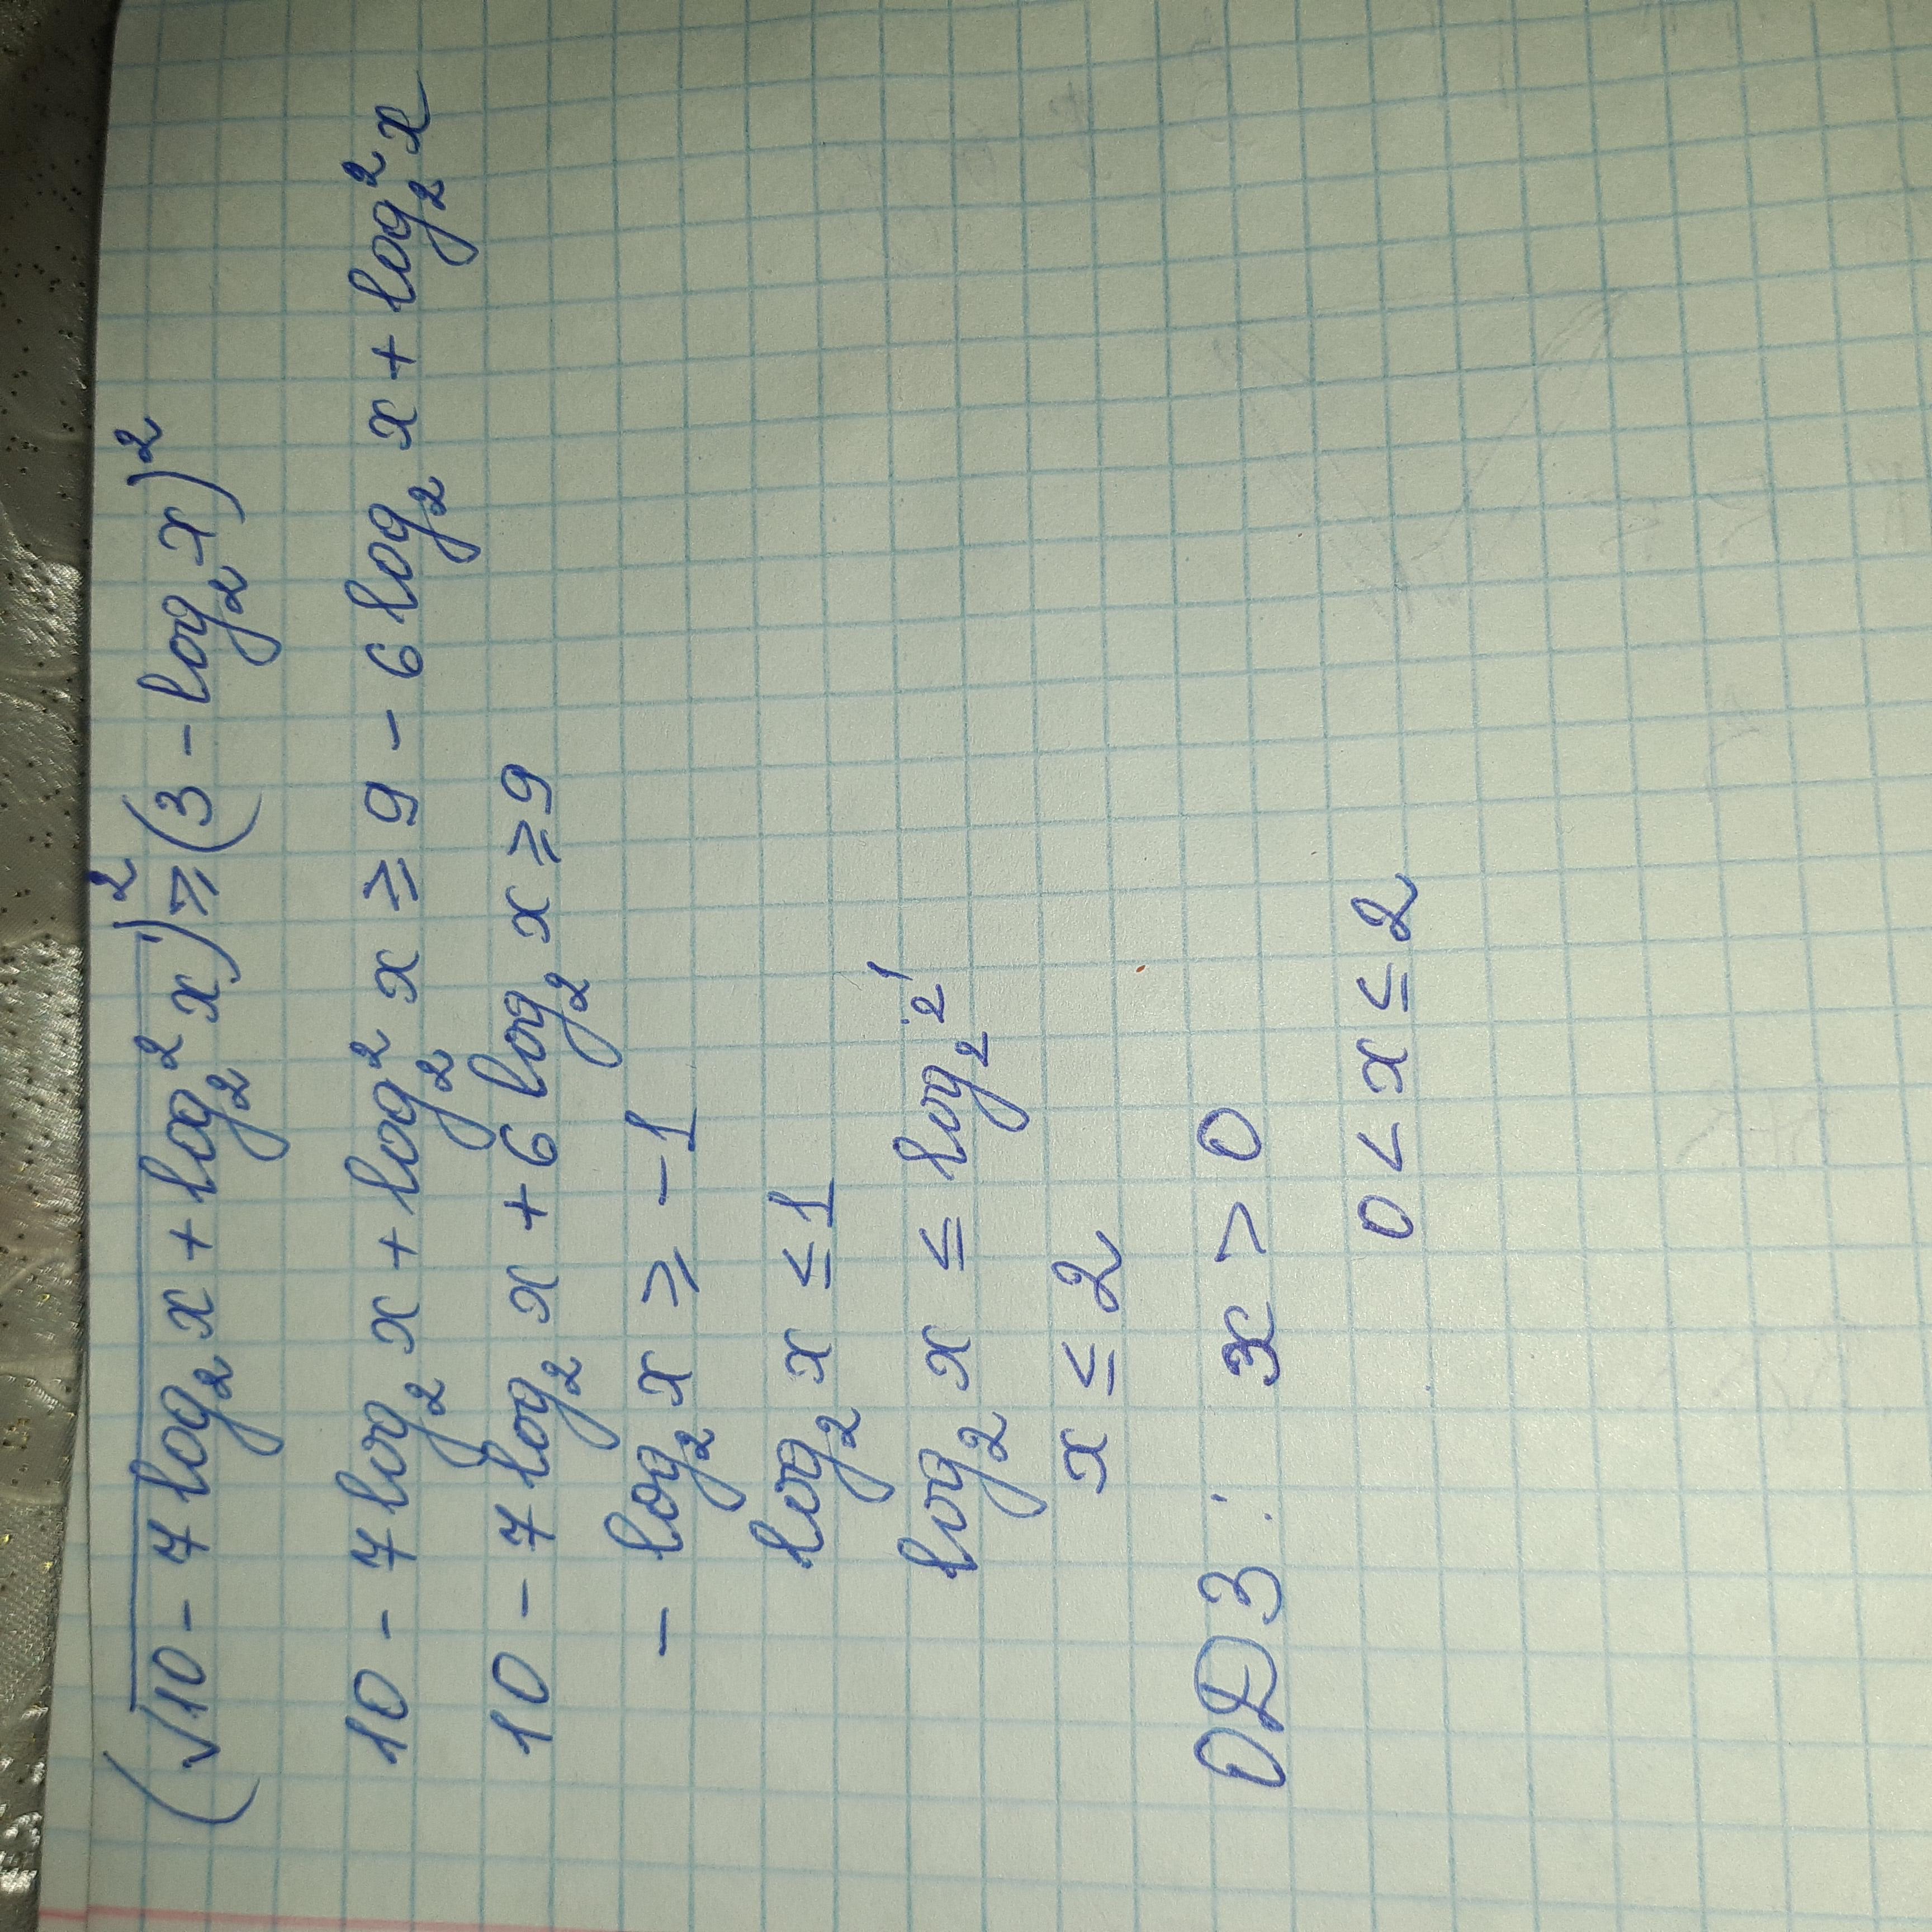 (√10 - 7 log₂ x + log₂² x)² ≥ (3 - log₂ x)²
10 - 7 log₂ x + log₂² x ≥ 9 - 6 log₂ x + log₂² x
10 - 7 log₂ x + 6 log₂ x ≥ 9
- log₂ x ≥ -1
log₂ x ≤ 1
log₂ x ≤ log₂ 2¹
x ≤ 2
ОДЗ: x > 0
0 < x ≤ 2